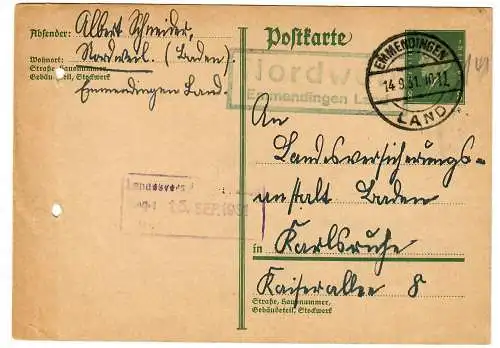 Absender: Albert Schneider,
Wohnort: Nordweil. (Baden).
Straße, Hausnummer,
Gebäudeteil, Stockwerk
Emmendingen Land.
Postkarte
Nordw
Emmendingen La
EMMENDINGEN
14.9.31. 10-11
LAND
An
Landesversicherungs-
anstalt Baden
in Karlsruhe
Kaiserallee 8
Straße, Hausnummer,
Gebäudeteil, Stockwerk
Landesvers
15. SEP. 1931